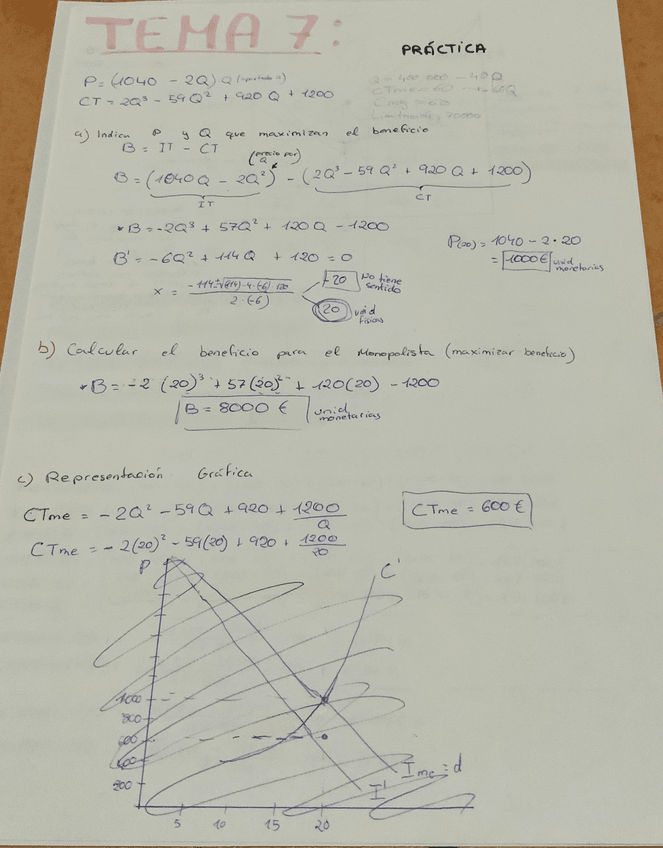 TEMA 7:
PRÁCTICA
P = (1040 - 2Q) Q
CT = 2Q³ - 59Q² + 920Q + 1200
a) Indica P y Q que maximizan el beneficio
B = IT - CT
(precio por Q)
B = (1040Q - 2Q²) - (2Q³ - 59Q² + 920Q + 1200)
IT CT
*B = -2Q³ + 57Q² + 120Q - 1200
B' = -6Q² + 114Q + 120 = 0
P(20) = 1040 - 2·20
= 1000€ unid monetarias
2·(-6)
-20 No tiene sentido
20 unid físicas
b) Calcular el beneficio para el Monopolista (maximizar beneficio)
*B = -2(20)³ + 57(20)² + 120(20) - 1200
B = 8000 € unid monetarias
c) Representación Gráfica
CTme = -2Q² - 59Q + 920 + 1200/Q
CTme = 600€
CTme = -2(20)² - 59(20) + 920 + 1200/20
P
C'
1000
800
600
400
200
Ime = d
I'
5 10 15 20